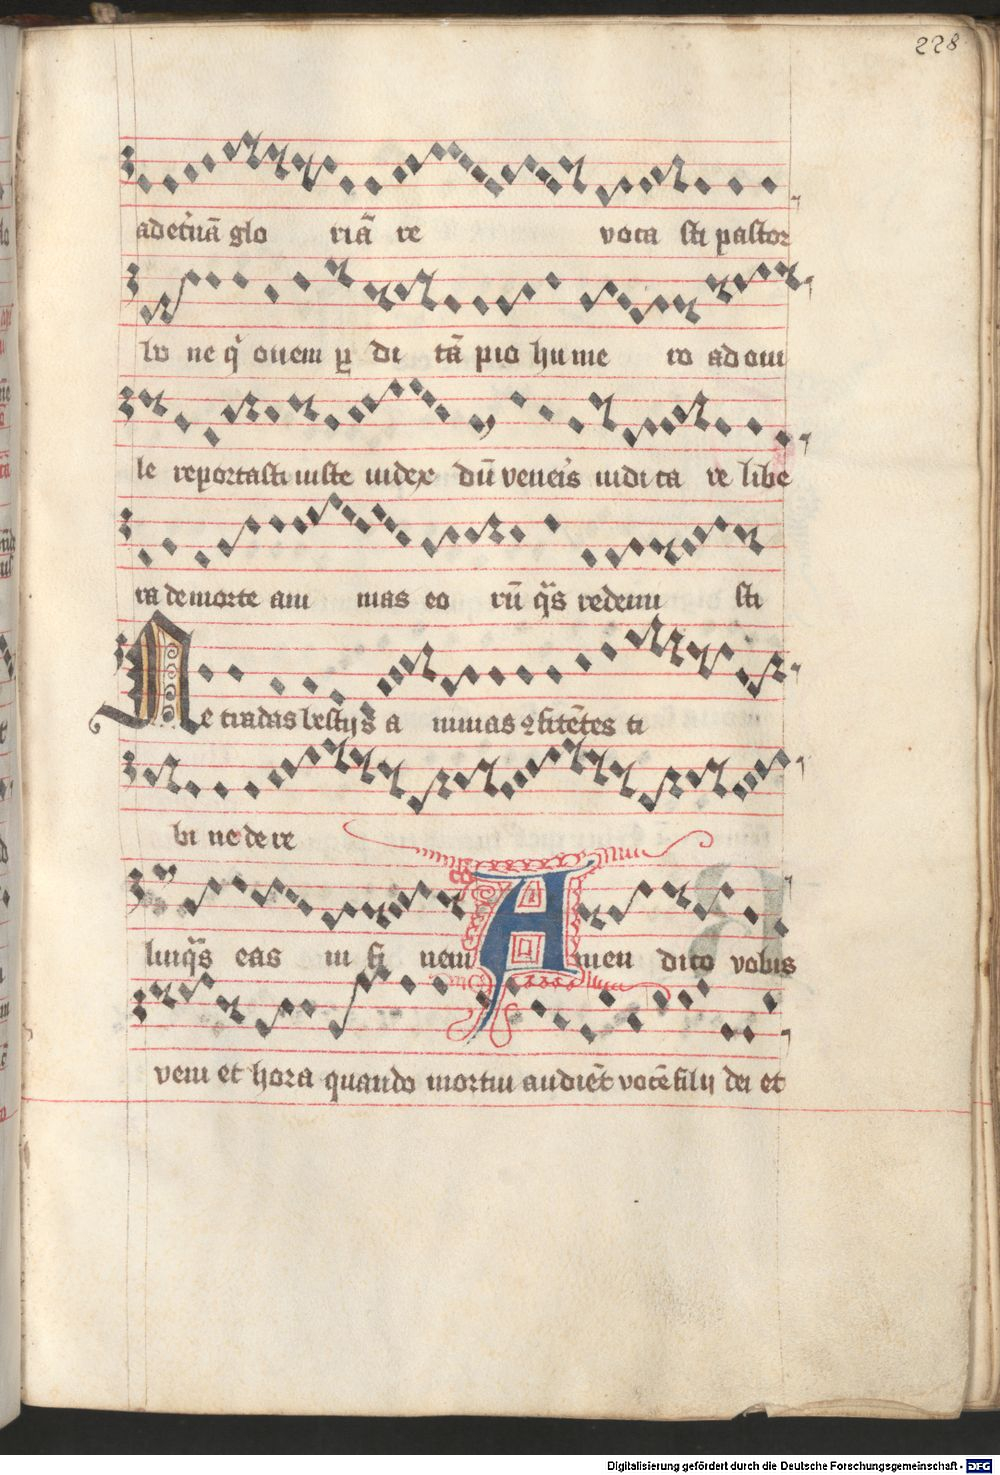 228
adet'nā glo riā re voca sti pastor
bo ne q' ouem ꝑ di tā pio hume ro ad oui
le reportasti iuste iudex dū veneis iudica re libe
ra de morte ani mas eo rū q̄s redemi sti
Ne tradas bestijs a nimas ꝯfitētes ti
bi ne de re
linq̄s eas in fi nem Amen dico vobis
veni et hora quando mortui audiēt vocē filij dei et
Digitalisierung gefördert durch die Deutsche Forschungsgemeinschaft - DFG